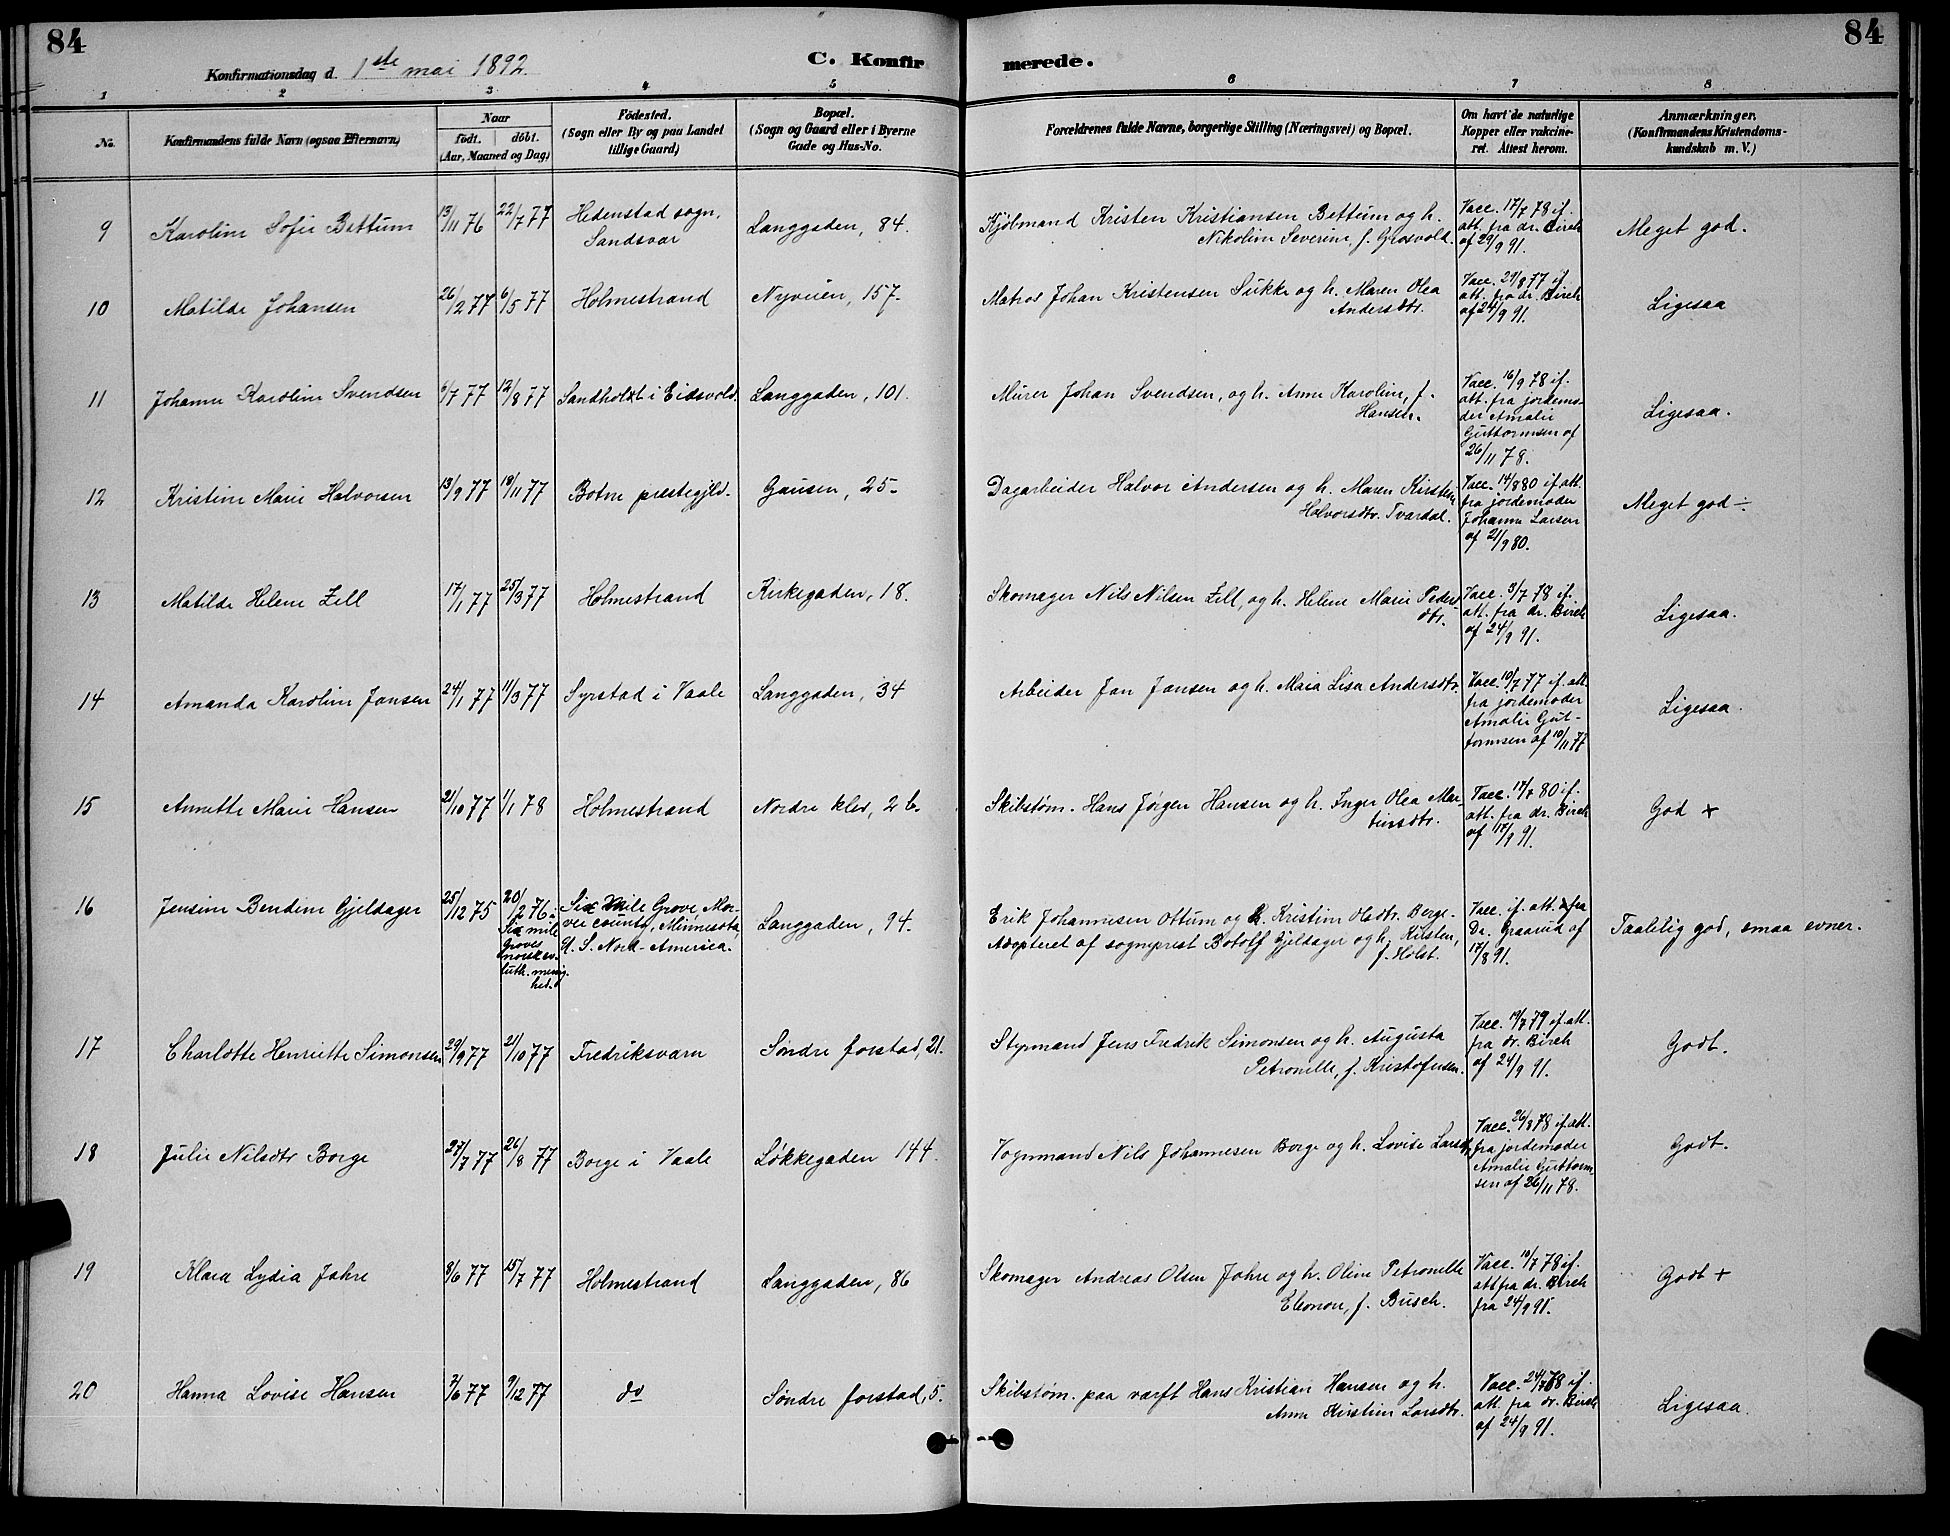 84
84
Konfirmationsdag d. 1ste mai 1892.
C. Konfir
merede.
1 2 3 4 5 6 7 8
No.
Konfirmandens fulde Navn (ogsaa Efternavn)
Naar
født. døbt.
(Aar, Maaned og Dag)
Födested.
(Sogn eller By og paa Landet
tillige Gaard)
Bopæl.
(Sogn og Gaard eller i Byerne
Gade og Hus-No.
Forældrenes fulde Navne, borgerlige Stilling (Næringsvei) og Bopæl.
Om havt de naturlige
Kopper eller vakcine-
ret. Attest herom.
Anmærkninger.
(Konfirmandens Kristendoms-
kundskab m. V.)
9 Karoline Sofie Bettum 13/11 76 22/7 77 Hedenstad sogn,
Sandsvær
Langgaden, 84.
Kjølmand Kristen Kristiansen Bettum og h.
Nikoline Severine, f. Grosvold.
Vacc. 17/7 78 if.
att. fra dr. Birch
af 29/9 91.
Meget god.
10 Matilde Johansen 26/2 77 6/5 77 Holmestrand Nyveien, 157.
Matros Johan Kristensen Sukke og h. Maren Olea
Andersdtr.
Vacc. 29/8 77 if.
att. fra dr. Birch
af 24/9 91.
Ligesaa
11 Johanne Karoline Svendsen 6/7 77 12/8 77 Sandholt i Eidsvold. Langgaden, 101.
Murer Johan Svendsen, og h. Anne Karoline, f.
Hansen.
Vacc. 16/9 78 if.
att. fra jordemo-
der Amalie
Guttormsen af
26/11 78.
Ligesaa.
12 Kristine Marie Halvorsen 13/9 77 18/11 77 Botne præstegjld. Gausen, 25.
Dagarbeider Halvor Andersen og h. Maren Kirstine
Halvorsdtr. Tvardal.
Vacc. 14/8 80 if att.
fra jordemoder
Johanne Larsen
af 21/9 80.
Meget god ÷.
13 Matilde Helene Zell 17/1 77 25/3 77 Holmestrand Kirkegaden, 18.
Skomager Nils Nilsen Zell, og h. Helene Marie Peders-
dtr.
Vacc. 3/7 78 if.
att. fra dr. Birch
af 24/9 91.
Ligesaa.
14 Amanda Karoline Jansen 24/1 77 11/3 77 Syrstad i Vaale Langgaden, 34
Arbeider Jan Jansen og h. Maia Lisa Andersdtr.
Vacc. 10/7 77 if. att.
fra jordemoder
Amalie Gut-
tormsen af 10/11 77
Ligesaa.
15 Annette Marie Hansen 21/10 77 1/1 78 Holmestrand Nordre klev, 26.
Skibstøm. Hans Jørgen Hansen og h. Inger Olea Mar-
tinsdtr.
Vacc. 17/7 80 if.
att. fra dr. Birch
af 17/9 91.
God +
16 Jensine Bendine Gjeldager 25/12 75 20/2 76 i
Six mile
Groves
norsk ev.
luth. menig-
hed.
Six Mile Grove, Mor-
vei county, Minnesota,
U. S. Nord-America.
Langgaden, 94.
Erik Johannesen Ottum og h. Kristine Oledtr. Berge.
Adopteret af sogneprest Botolf Gjeldager og h. Kirsten,
f. Holst.
Vacc. if. att. fra
Dr. Graarud af
17/8 91.
Taalelig god, smaa evner.
17 Charlotte Henriette Simonsen 29/9 77 21/10 77 Fredriksværn Søndre forstad, 21.
Styrmand Jens Fredrik Simonsen og h. Augusta
Petronelle, f. Kristofersen.
Vacc. 19/7 79 if att.
fra dr. Birch
af 24/9 91.
Godt.
18 Julie Nilsdtr Borge 27/7 77 26/8 77 Borge i Vaale Løkkegaden 144.
Vognmand Nils Johannesen Borge og h. Lovise Larsdtr.
Vacc. 26/8 78 if att.
fra jordemoder
Amalie Guttorm-
sen af 26/11 78.
Godt.
19 Klara Lydia Jahre 8/6 77 15/7 77 Holmestrand Langgaden, 86
Skomager Andreas Olsen Jahre og h. Oline Petronelle
Eleonore, f. Busch.
Vacc. 10/7 78 if.
att fra dr. Birch
fra 24/9 91.
Godt +
20 Hanna Lovise Hansen 2/6 77 9/12 77 do Søndre forstad, 5.
Skibstøm. paa værft Hans Kristian Hansen og h.
Anne Kirstine Larsdtr.
Vacc. 24/7 78 if.
att. fra dr. Birch
af 24/9 91.
Ligesaa.